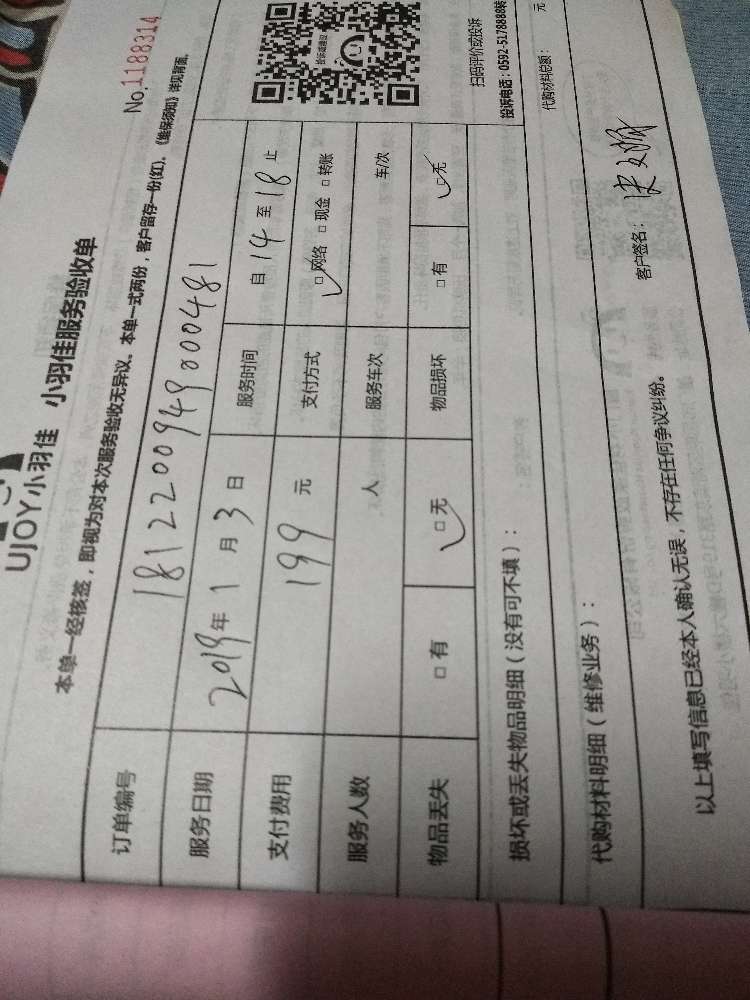 UJOY小羽佳 小羽佳服务验收单
No.1188314
本单一经核签，即视为对本次服务验收无异议。本单一式两份，客户留存一份(红)。《维保须知》详见背面。
订单编号 1812200949000481
服务日期 2019年1月3日 服务时间 自14至18止
支付费用 199元 支付方式 □网络 □现金 □转账
服务人数 人 服务车次 车/次
物品丢失 □有 □无 物品损坏 □有 □无
扫码评价或投诉
投诉电话：0592-5178888转
损坏或丢失物品明细（没有可不填）：
代购材料明细（维修业务）：
代购材料总额： 元
以上填写信息已经本人确认无误，不存在任何争议纠纷。
客户签名：